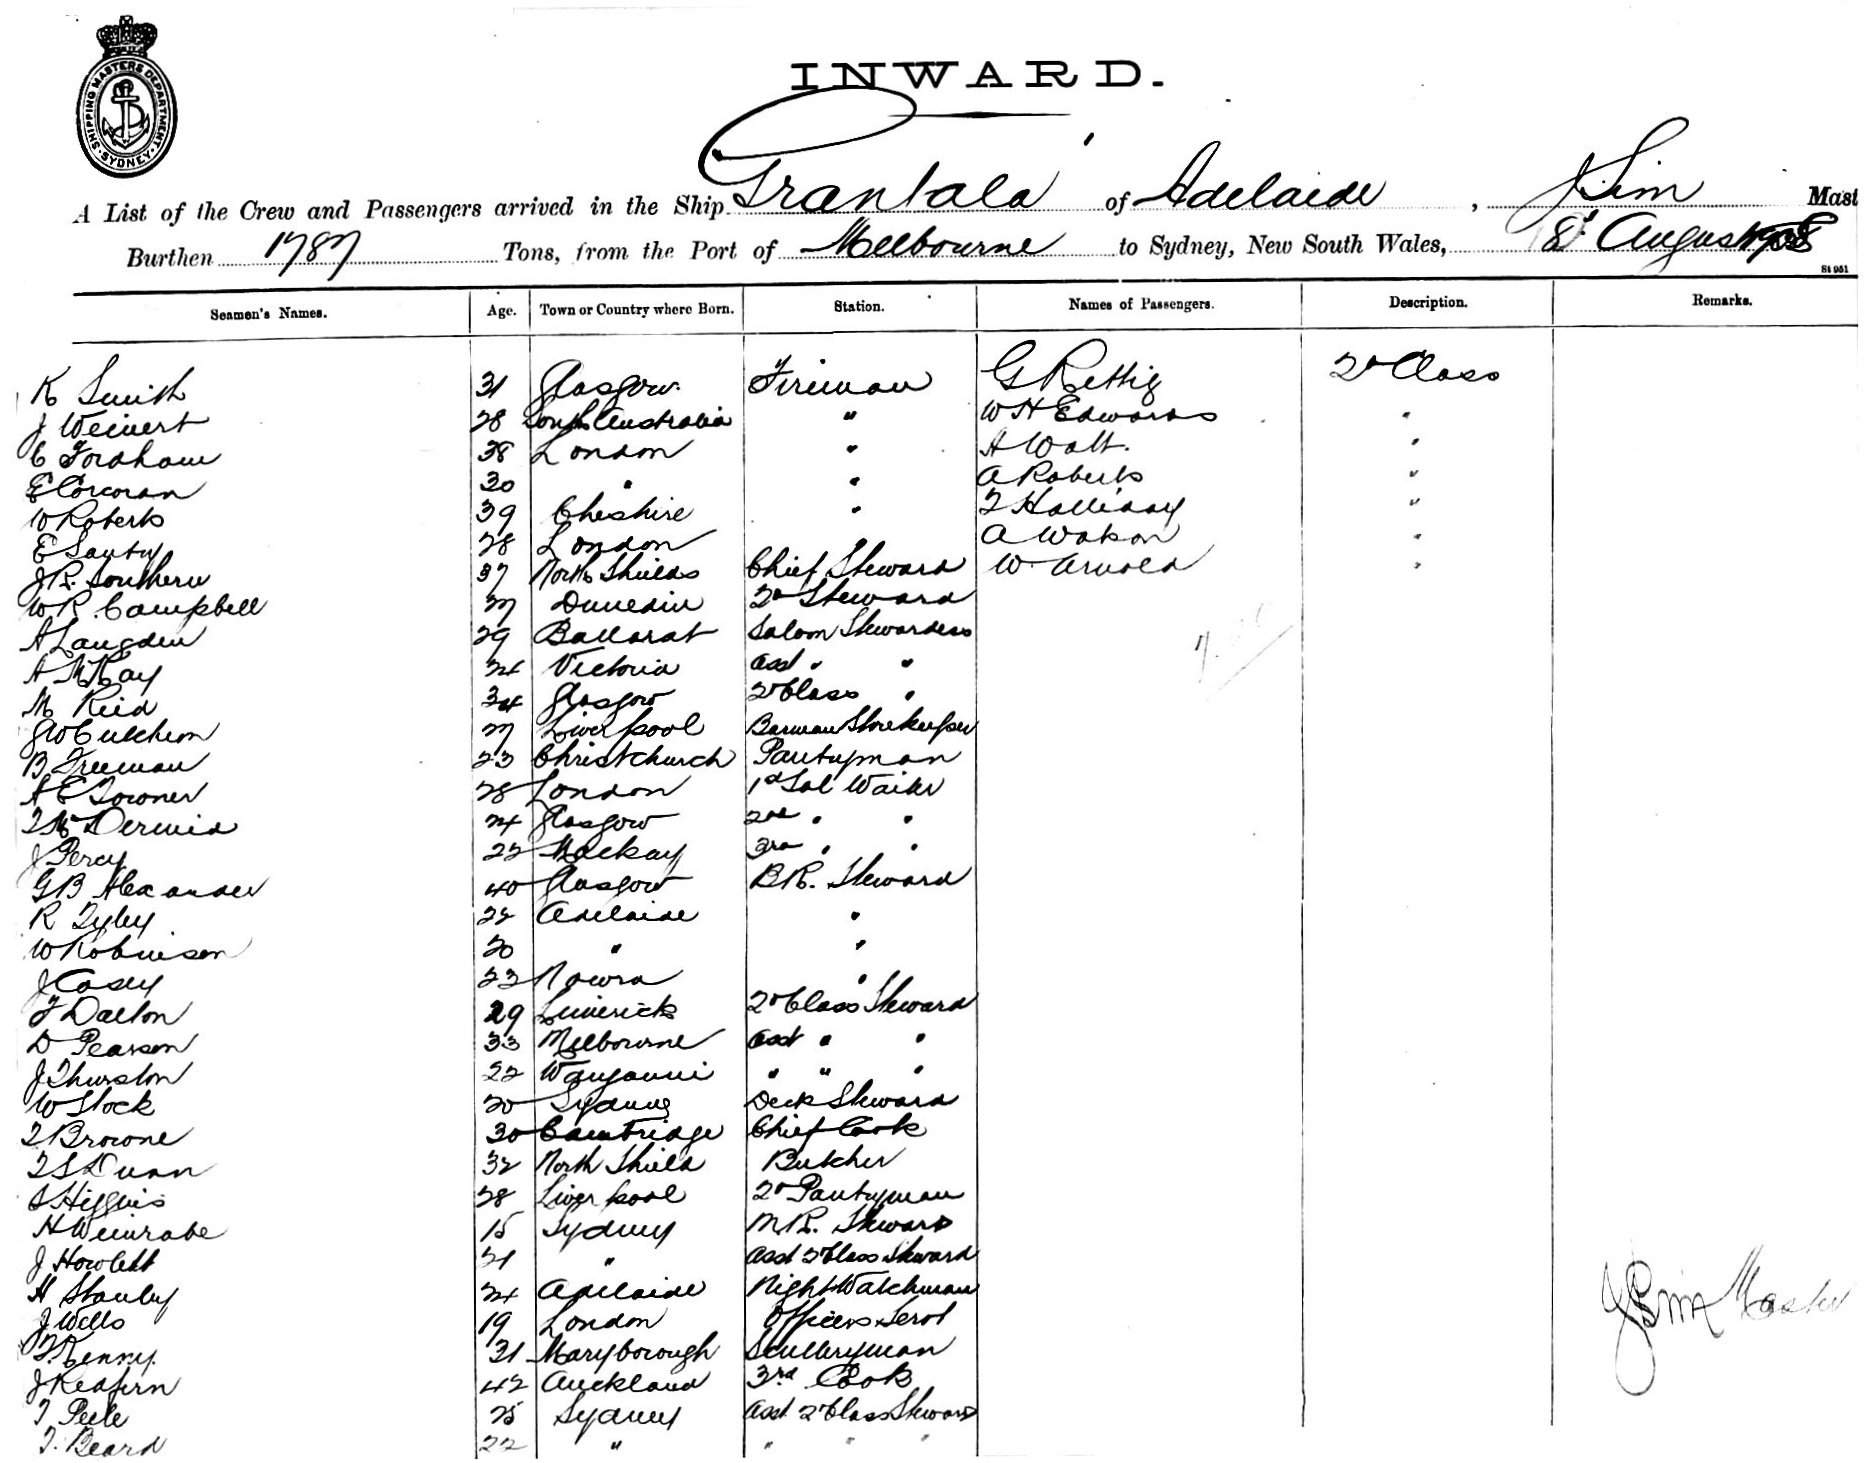 SHIPPING MASTERS DEPARTMENT. SYDNEY
INWARD.
A List of the Crew and Passengers arrived in the Ship Grantala of Adelaide, J Sim Mast
Burthen 1787 Tons, from the Port of Melbourne to Sydney, New South Wales, 8 August 1908
St 951
Seamen's Names. Age. Town or Country where Born. Station. Names of Passengers. Description. Remarks.
K Smith 31 Glasgow. Fireman G Rettig 2d Class
J Weinert 28 South Australia " W H Edwards "
C Fordham 38 London " A Watt. "
E Corcoran 30 " " A Roberts "
W Roberts 39 Cheshire " T Halliday "
E Santy 28 London " A Watson "
J R. Southern 37 North Shields Chief Steward W. Arnold "
W R. Campbell 27 Dunedin 2d Steward
A Langden 29 Ballarat Saloon Stewardess
A McKay 24 Victoria Asst " "
M Reid 34 Glasgow 2d Class "
G W Cutcheon 27 Liverpool Barman Storekeeper
B Freeman 23 Christchurch Pantryman
A E Towner 28 London 1st Sal Waiter
T McDermid 24 Glasgow 2nd " "
J Percy 22 Mackay 3rd " "
G B Alexander 40 Glasgow B.R. Steward
R Tyley 22 Adelaide "
W Robinson 20 " "
J Casey 22 Nowra "
F Dalton 29 Limerick 2d Class Steward
D Pearson 33 Melbourne Asst " "
J Thurston 22 Wanganui " " "
W Stock 20 Sydney Deck Steward
T Browne 30 Cambridge Chief Cook
T S Dunn 32 North Shield Butcher
S Higgins 28 Liverpool 2d Pantryman
H Weinrabe 15 Sydney M.R. Steward
J Howlett 21 " Asst 2d Class Steward
H Stanley 24 Adelaide Night Watchman
J Wells 19 London Officers Servt
T. Kenny. 31 Maryborough Sculleryman
J Redfern 42 Auckland 3rd Cook
T Peele 25 Sydney Asst 2d Class Steward
T. Beard 22 " " " "
J Sim Master